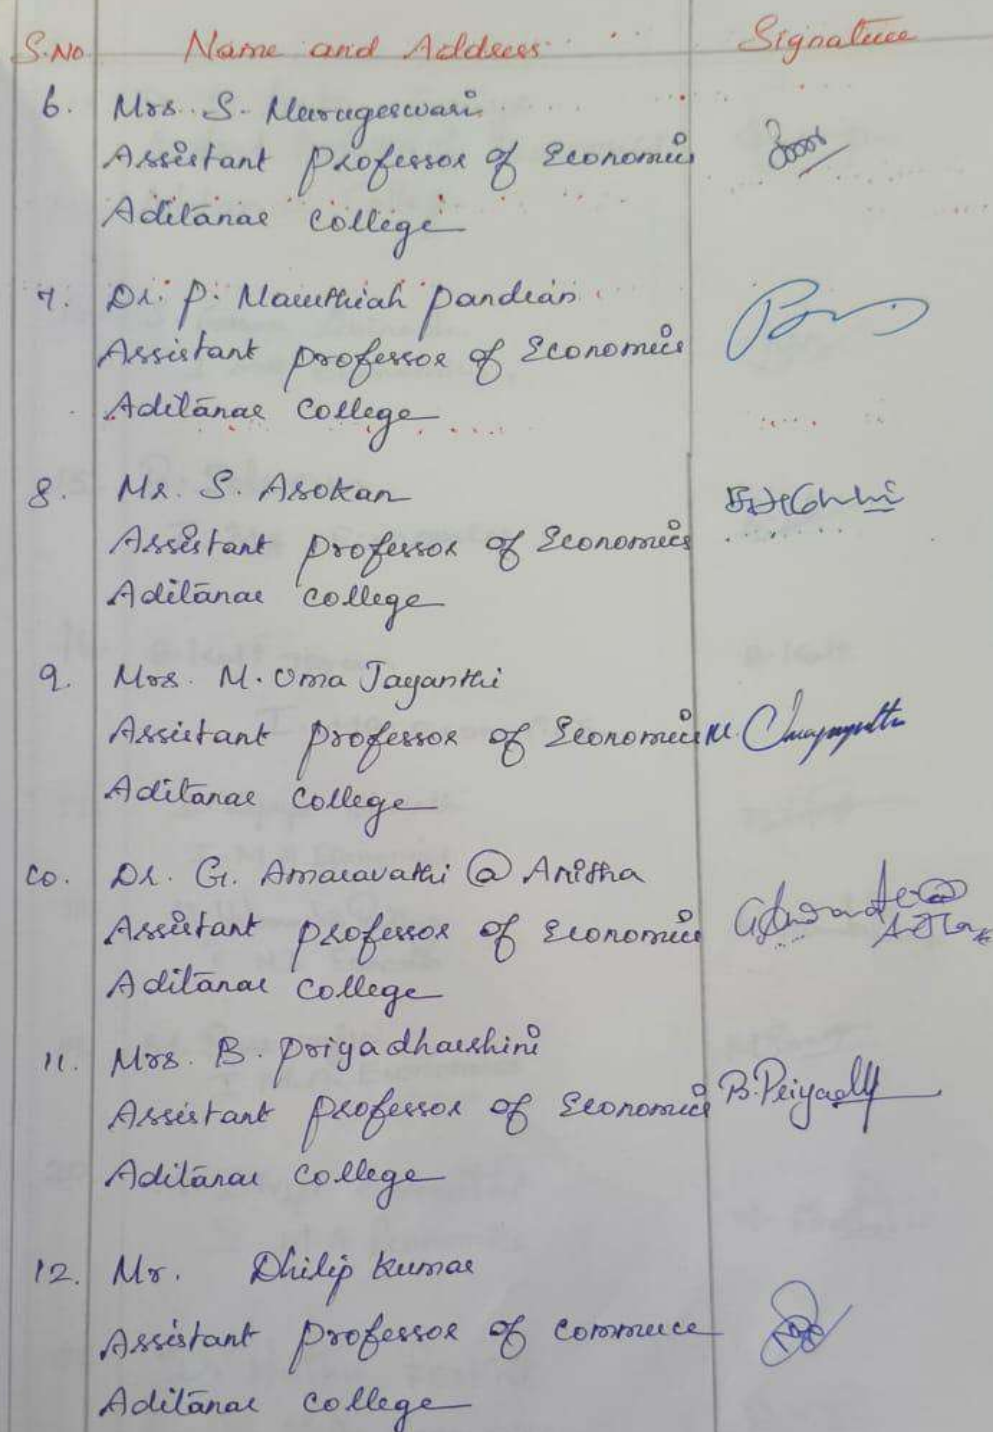 S.No Name and Address Signature
6. Mrs. S. Murugeswari
Assistant professor of Economics
Aditanar college
7. Dr. P. Maruthiah pandian
Assistant professor of Economics
Aditanar college
8. Mr. S. Asokan
Assistant professor of Economics
Aditanar college
9. Mrs. M. Uma Jayanthi
Assistant professor of Economics
Aditanar college
10. Dr. G. Amaravathi @ Anitha
Assistant professor of Economics
Aditanar college
11. Mrs. B. priyadharshini B. Priyadh
Assistant professor of Economics
Aditanar college
12. Mr. Dhilip Kumar
Assistant professor of commerce
Aditanar college